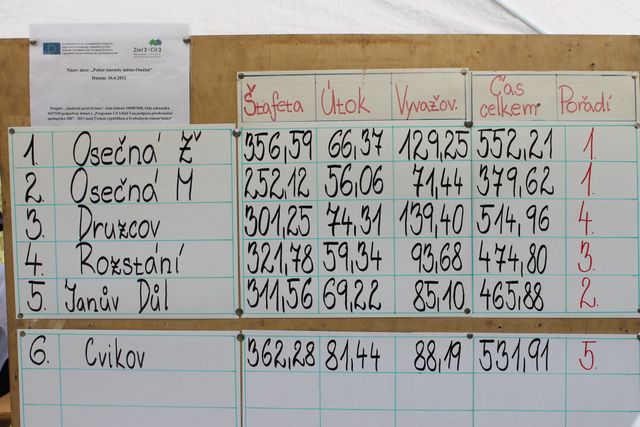 Ziel 3 Cíl 3
Název akce: „Pohár starosty města Osečná"
Datum: 16.6.2012
Štafeta Útok Vyvažov. Čas celkem Pořadí
1. Osečná Ž 356,59 66,37 129,25 552,21 1.
2. Osečná M 252,12 56,06 71,44 379,62 1.
3. Druzcov 301,25 74,31 139,40 514,96 4.
4. Rozstání 321,78 59,34 93,68 474,80 3.
5. Janův Důl 311,56 69,22 85,10 465,88 2.
6. Cvikov 362,28 81,44 88,19 531,91 5.